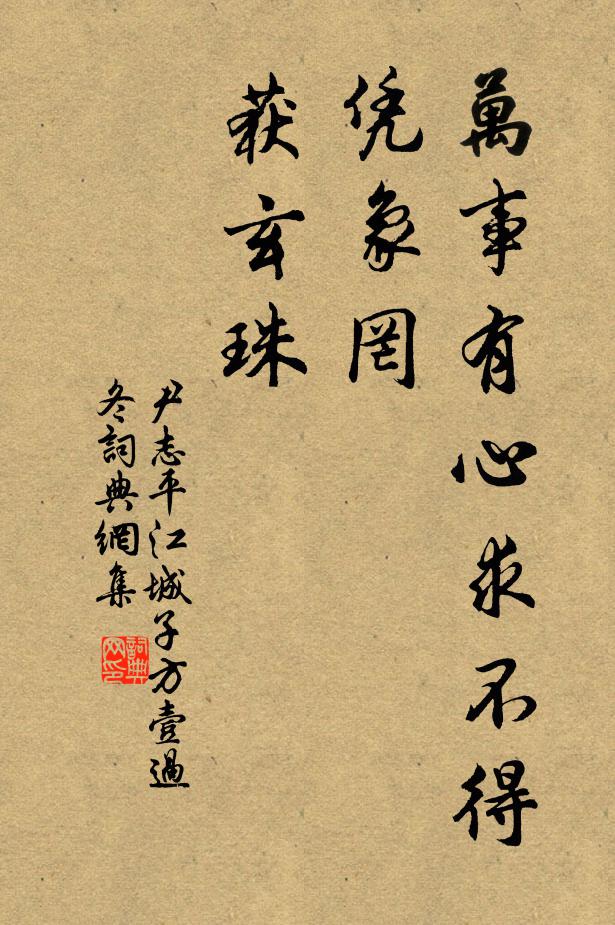 萬事有心求不得
凭象罔
获玄珠
尹志平江城子方壹過
冬詞典網集
詞典网印